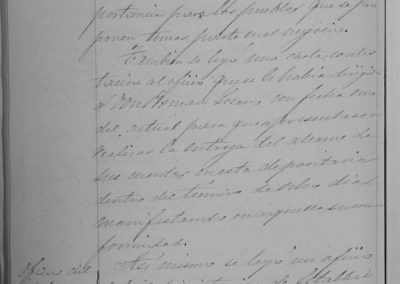 portancia para los pueblos que se pro
ponen tomar parte en el negocio.
Tambien se leyó una carta, contes
tacion al oficio que se le habia dirigido
á Don Roman Lozano con fecha once
del actual para que se presentase á
realizar la entrega del alcance de
sus cuentas en esta depositaria
dentro del término de ocho dias,
manifestando en aquella su con
formidad.
Oficio del
Así mismo se leyó un oficio